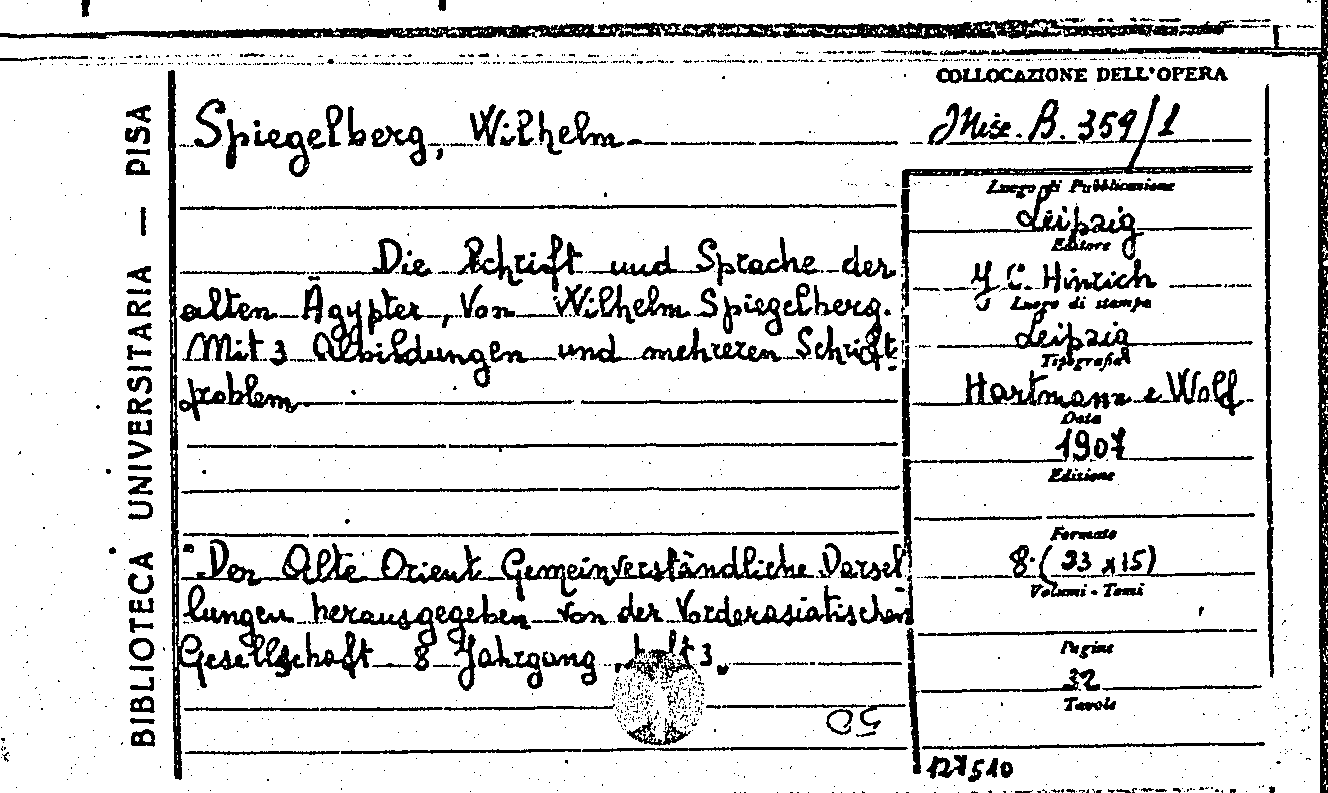 BIBLIOTECA UNIVERSITARIA — PISA
COLLOCAZIONE DELL'OPERA
Misc. B. 359/1
Spiegelberg, Wilhelm.
Die Schrift und Sprache der
alten Ägypter, von Wilhelm Spiegelberg.
Mit 3 Abbildungen und mehreren Schrift-
problem.
"Der Alte Orient Gemeinverständliche Darsel
lungen herausgegeben von der Vorderasiatischen
Gesellschaft 8 Jahrgang, heft 3.
50
Luogo di Pubblicazione
Leipzig
Editore
J C. Hinrich
Luogo di stampa
Leipzig
Tipografia
Hartmann e Wolf
Data
1907
Edizione
Formato
8. (23 x 15)
Volumi - Tomi
Pagine
32
Tavole
127510